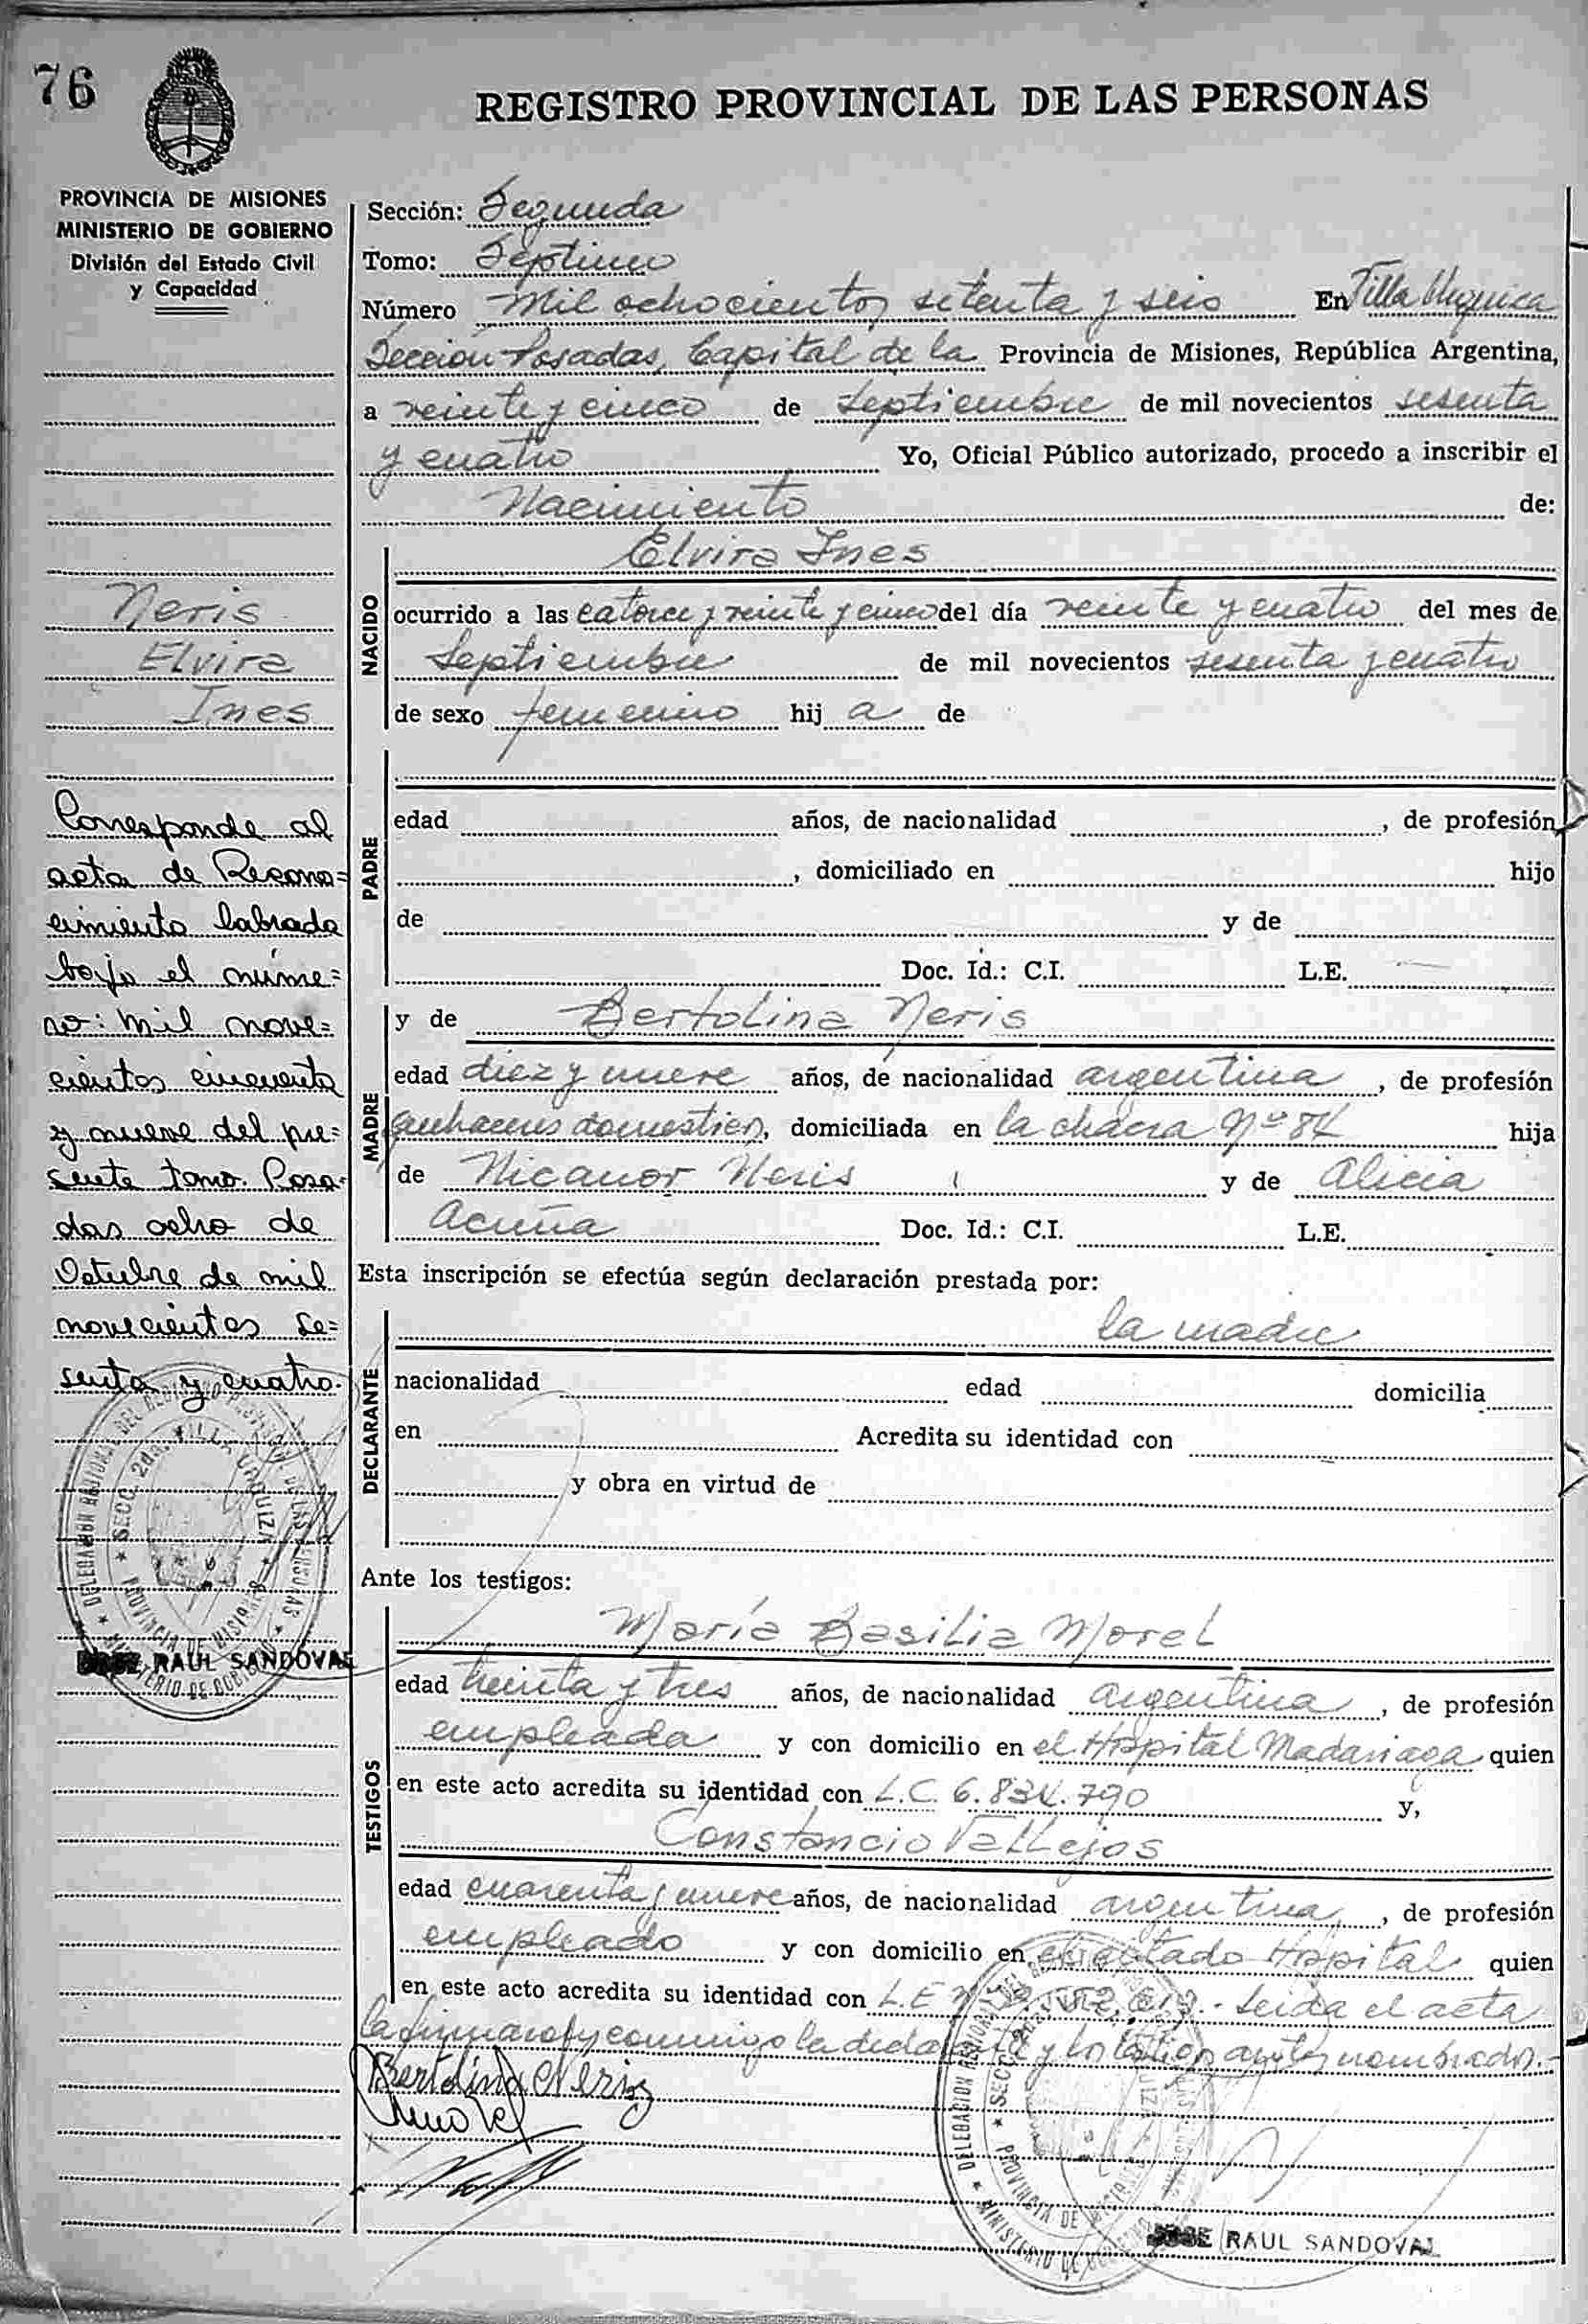 76
REGISTRO PROVINCIAL DE LAS PERSONAS
PROVINCIA DE MISIONES
MINISTERIO DE GOBIERNO
División del Estado Civil
y Capacidad
Neris
Elvira
Ines
Corresponde al
acta de Recono=
cimiento labrada
bajo el núme=
ro: mil nove=
cientos cincuenta
y nueve del pre=
sente tomo. Posa-
das ocho de
Octubre de mil
novecientos se=
senta y cuatro.
DELEGACION REGIONAL DEL REGISTRO PROVINCIAL DE LAS PERSONAS
SECC. 2da. VILLA URQUIZA
PROVINCIA DE MISIONES
MINISTERIO DE GOBIERNO
JOSE RAUL SANDOVAL
Sección: Segunda
Tomo: Séptimo
Número Mil ochocientos setenta y seis En Villa Urquiza
Sección Posadas, Capital de la Provincia de Misiones, República Argentina,
a veinte y cinco de Septiembre de mil novecientos sesenta
y cuatro Yo, Oficial Público autorizado, procedo a inscribir el
Nacimiento de:
NACIDO
Elvira Ines
ocurrido a las catorce y veinte y cinco del día veinte y cuatro del mes de
Septiembre de mil novecientos sesenta y cuatro
de sexo femenino hij a de
PADRE
edad años, de nacionalidad , de profesión
, domiciliado en hijo
de y de
Doc. Id.: C.I. L.E.
MADRE
y de Bertolina Neris
edad diez y nueve años, de nacionalidad argentina, de profesión
quehaceres domesticos, domiciliada en la chacra Nº 84 hija
de Nicanor Neris y de Alicia
Acuña Doc. Id.: C.I. L.E.
Esta inscripción se efectúa según declaración prestada por:
DECLARANTE
la madre
nacionalidad edad domicilia
en Acredita su identidad con
y obra en virtud de
Ante los testigos:
TESTIGOS
María Basilia Morel
edad treinta y tres años, de nacionalidad argentina, de profesión
empleada y con domicilio en el Hospital Madariaga quien
en este acto acredita su identidad con L.C. 6.834.790 y,
Constancio Vallejos
edad cuarenta y nueve años, de nacionalidad argentina, de profesión
empleado y con domicilio en el citado Hospital quien
en este acto acredita su identidad con L.E Nº Leida el acta
la firmaron y conmigo la declarante y los testigos antes nombrados.-
Bertolina Neris
Morel
DELEGACION REGIONAL DEL
SECC.
PROVINCIA DE MISIONES
MINISTERIO DE GOBIERNO
JOSE RAUL SANDOVAL